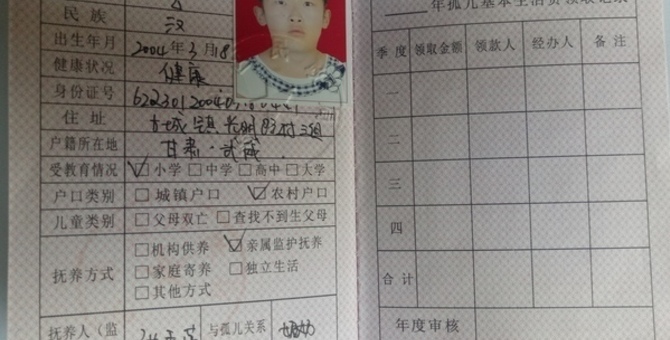 民族 汉
年孤儿基本生活费领取记录
出生年月 2004年3月18
健康状况 健康
身份证号
住址 古城镇 村三组
户籍所在地 甘肃·武威
受教育情况 ☑小学 □中学 □高中 □大学
户口类别 □城镇户口 ☑农村户口
儿童类别 □父母双亡 □查找不到生父母
抚养方式 □机构供养 ☑亲属监护抚养
□家庭寄养 □独立生活
□其他方式
抚养人(监 与孤儿关系
季度 领取金额 领款人 经办人 备注
一
二
三
四
合计
年度审核